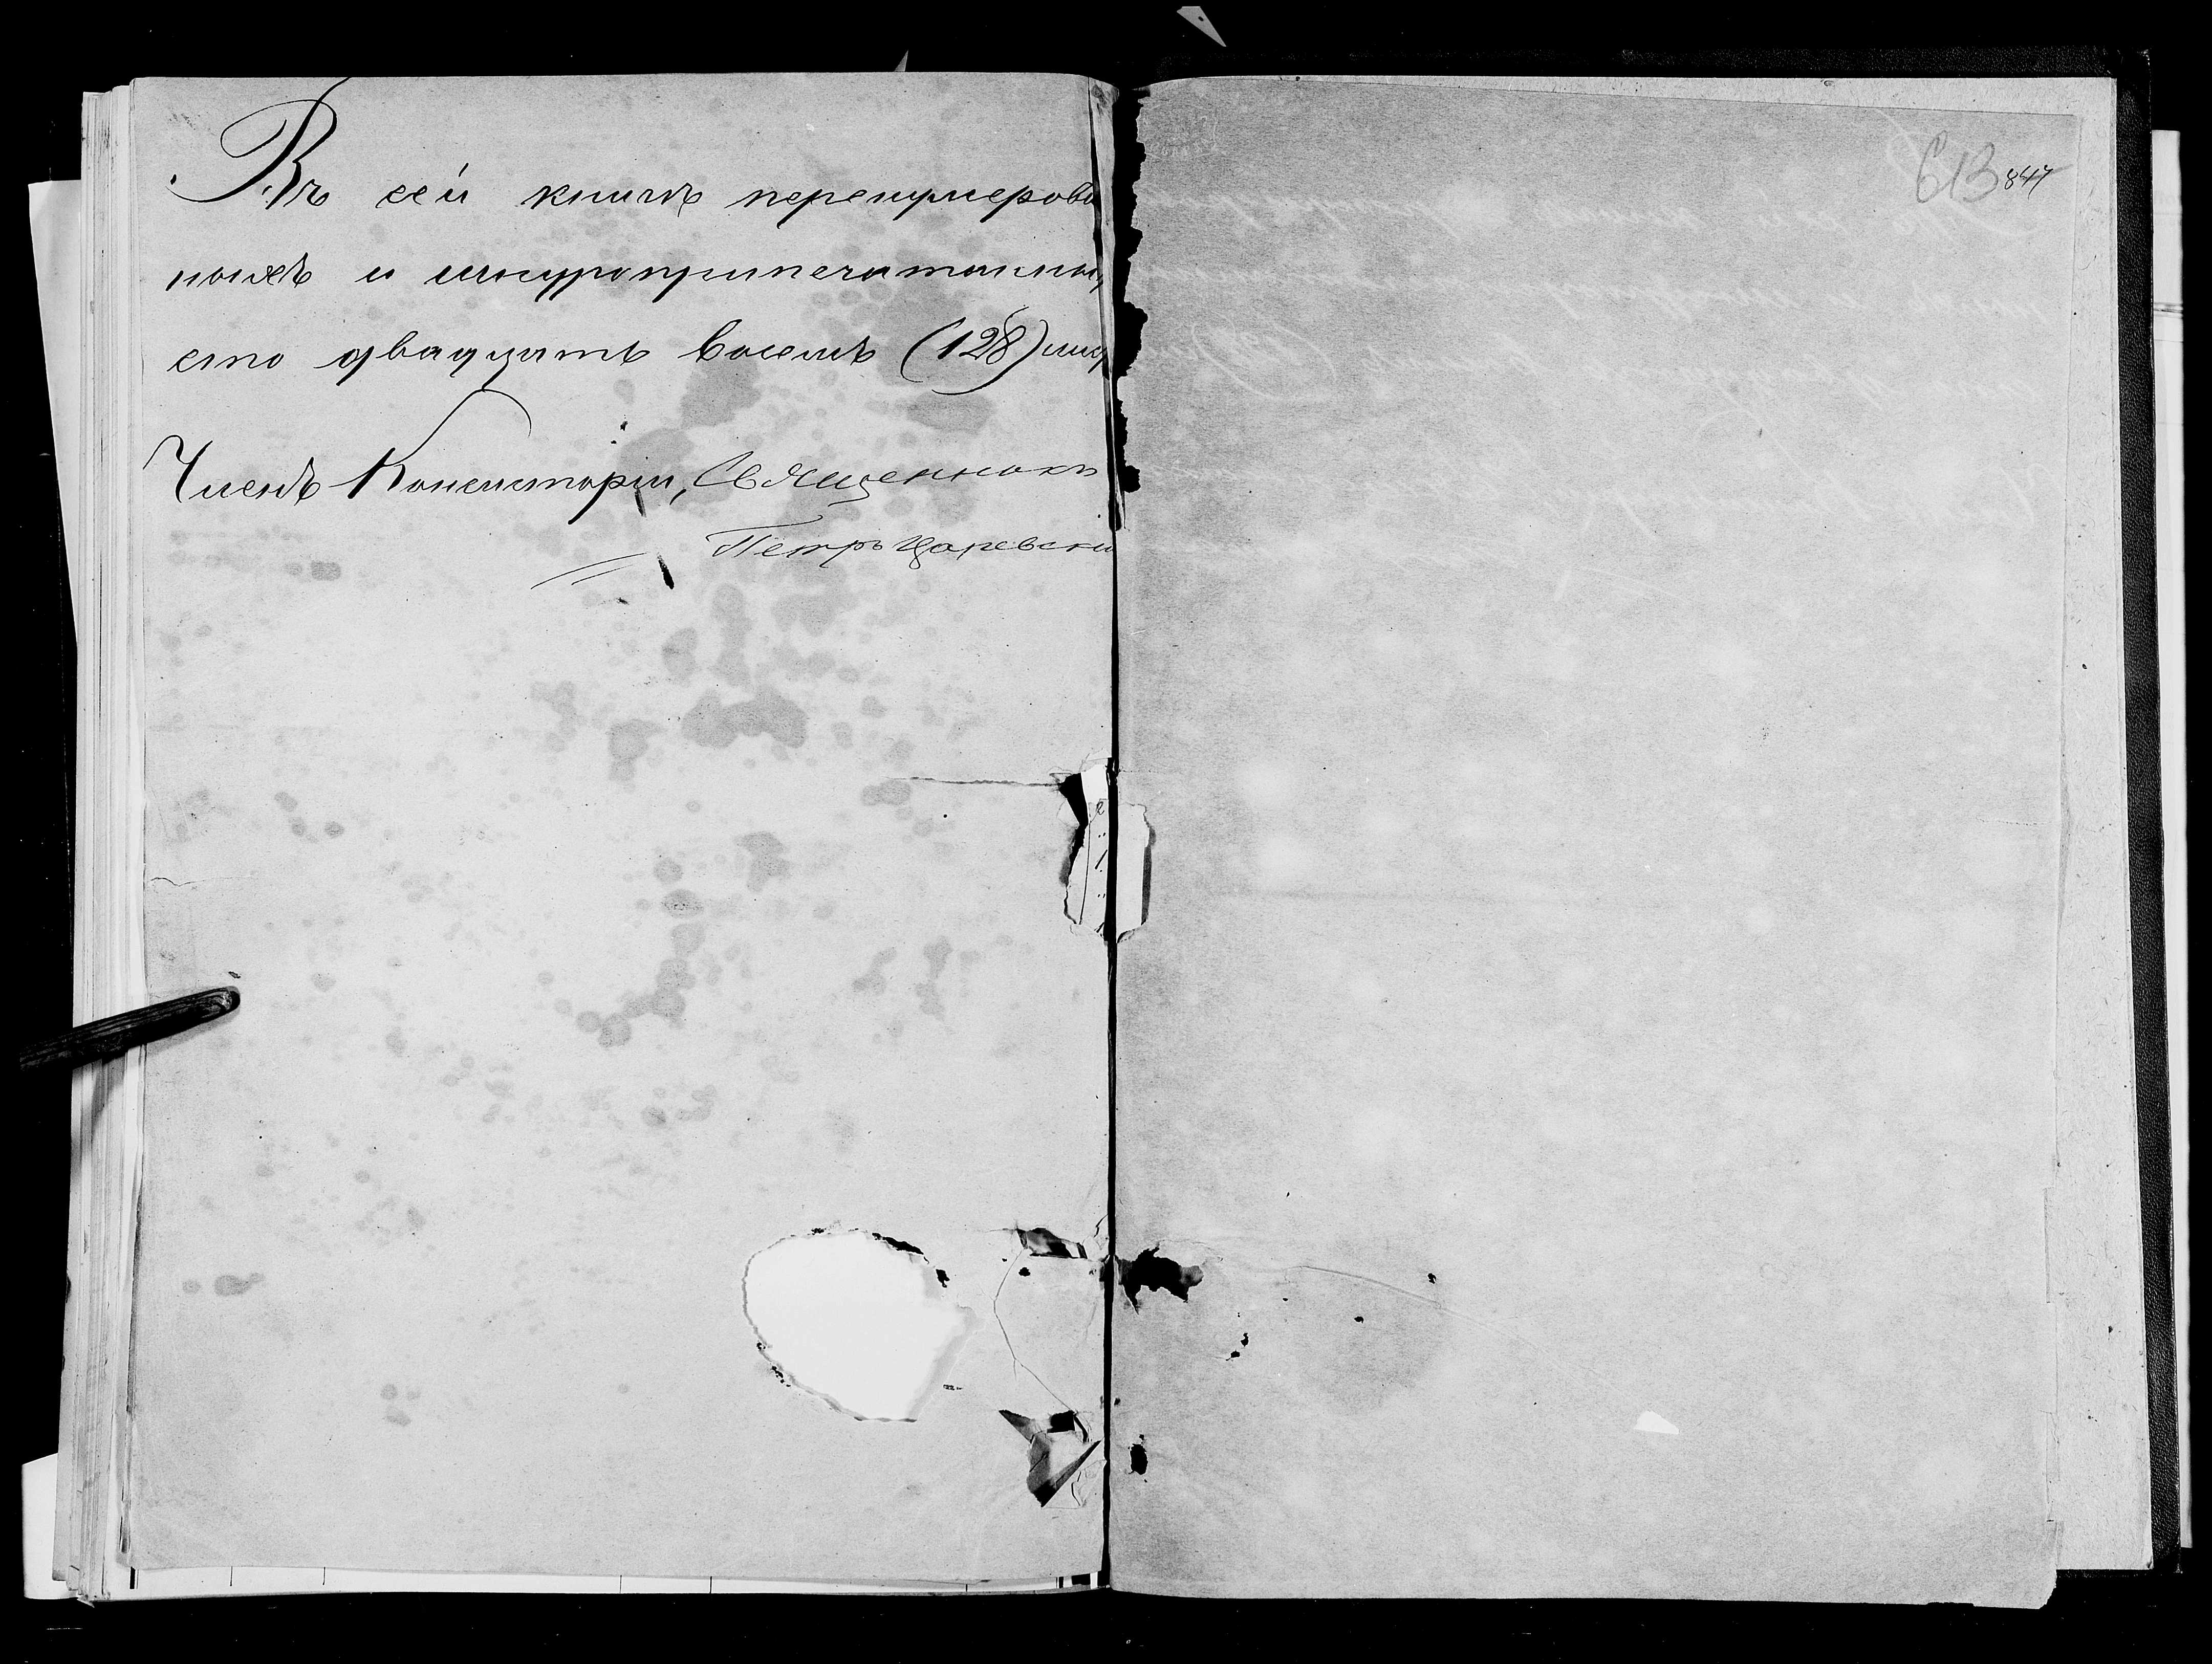 Въ сей книгѣ перенумерова
ныхъ и шнуроприпечатанны
сто двадцать восемь (128) лис
Членъ Консисторіи, Священникъ
Петръ Царевски
613 847